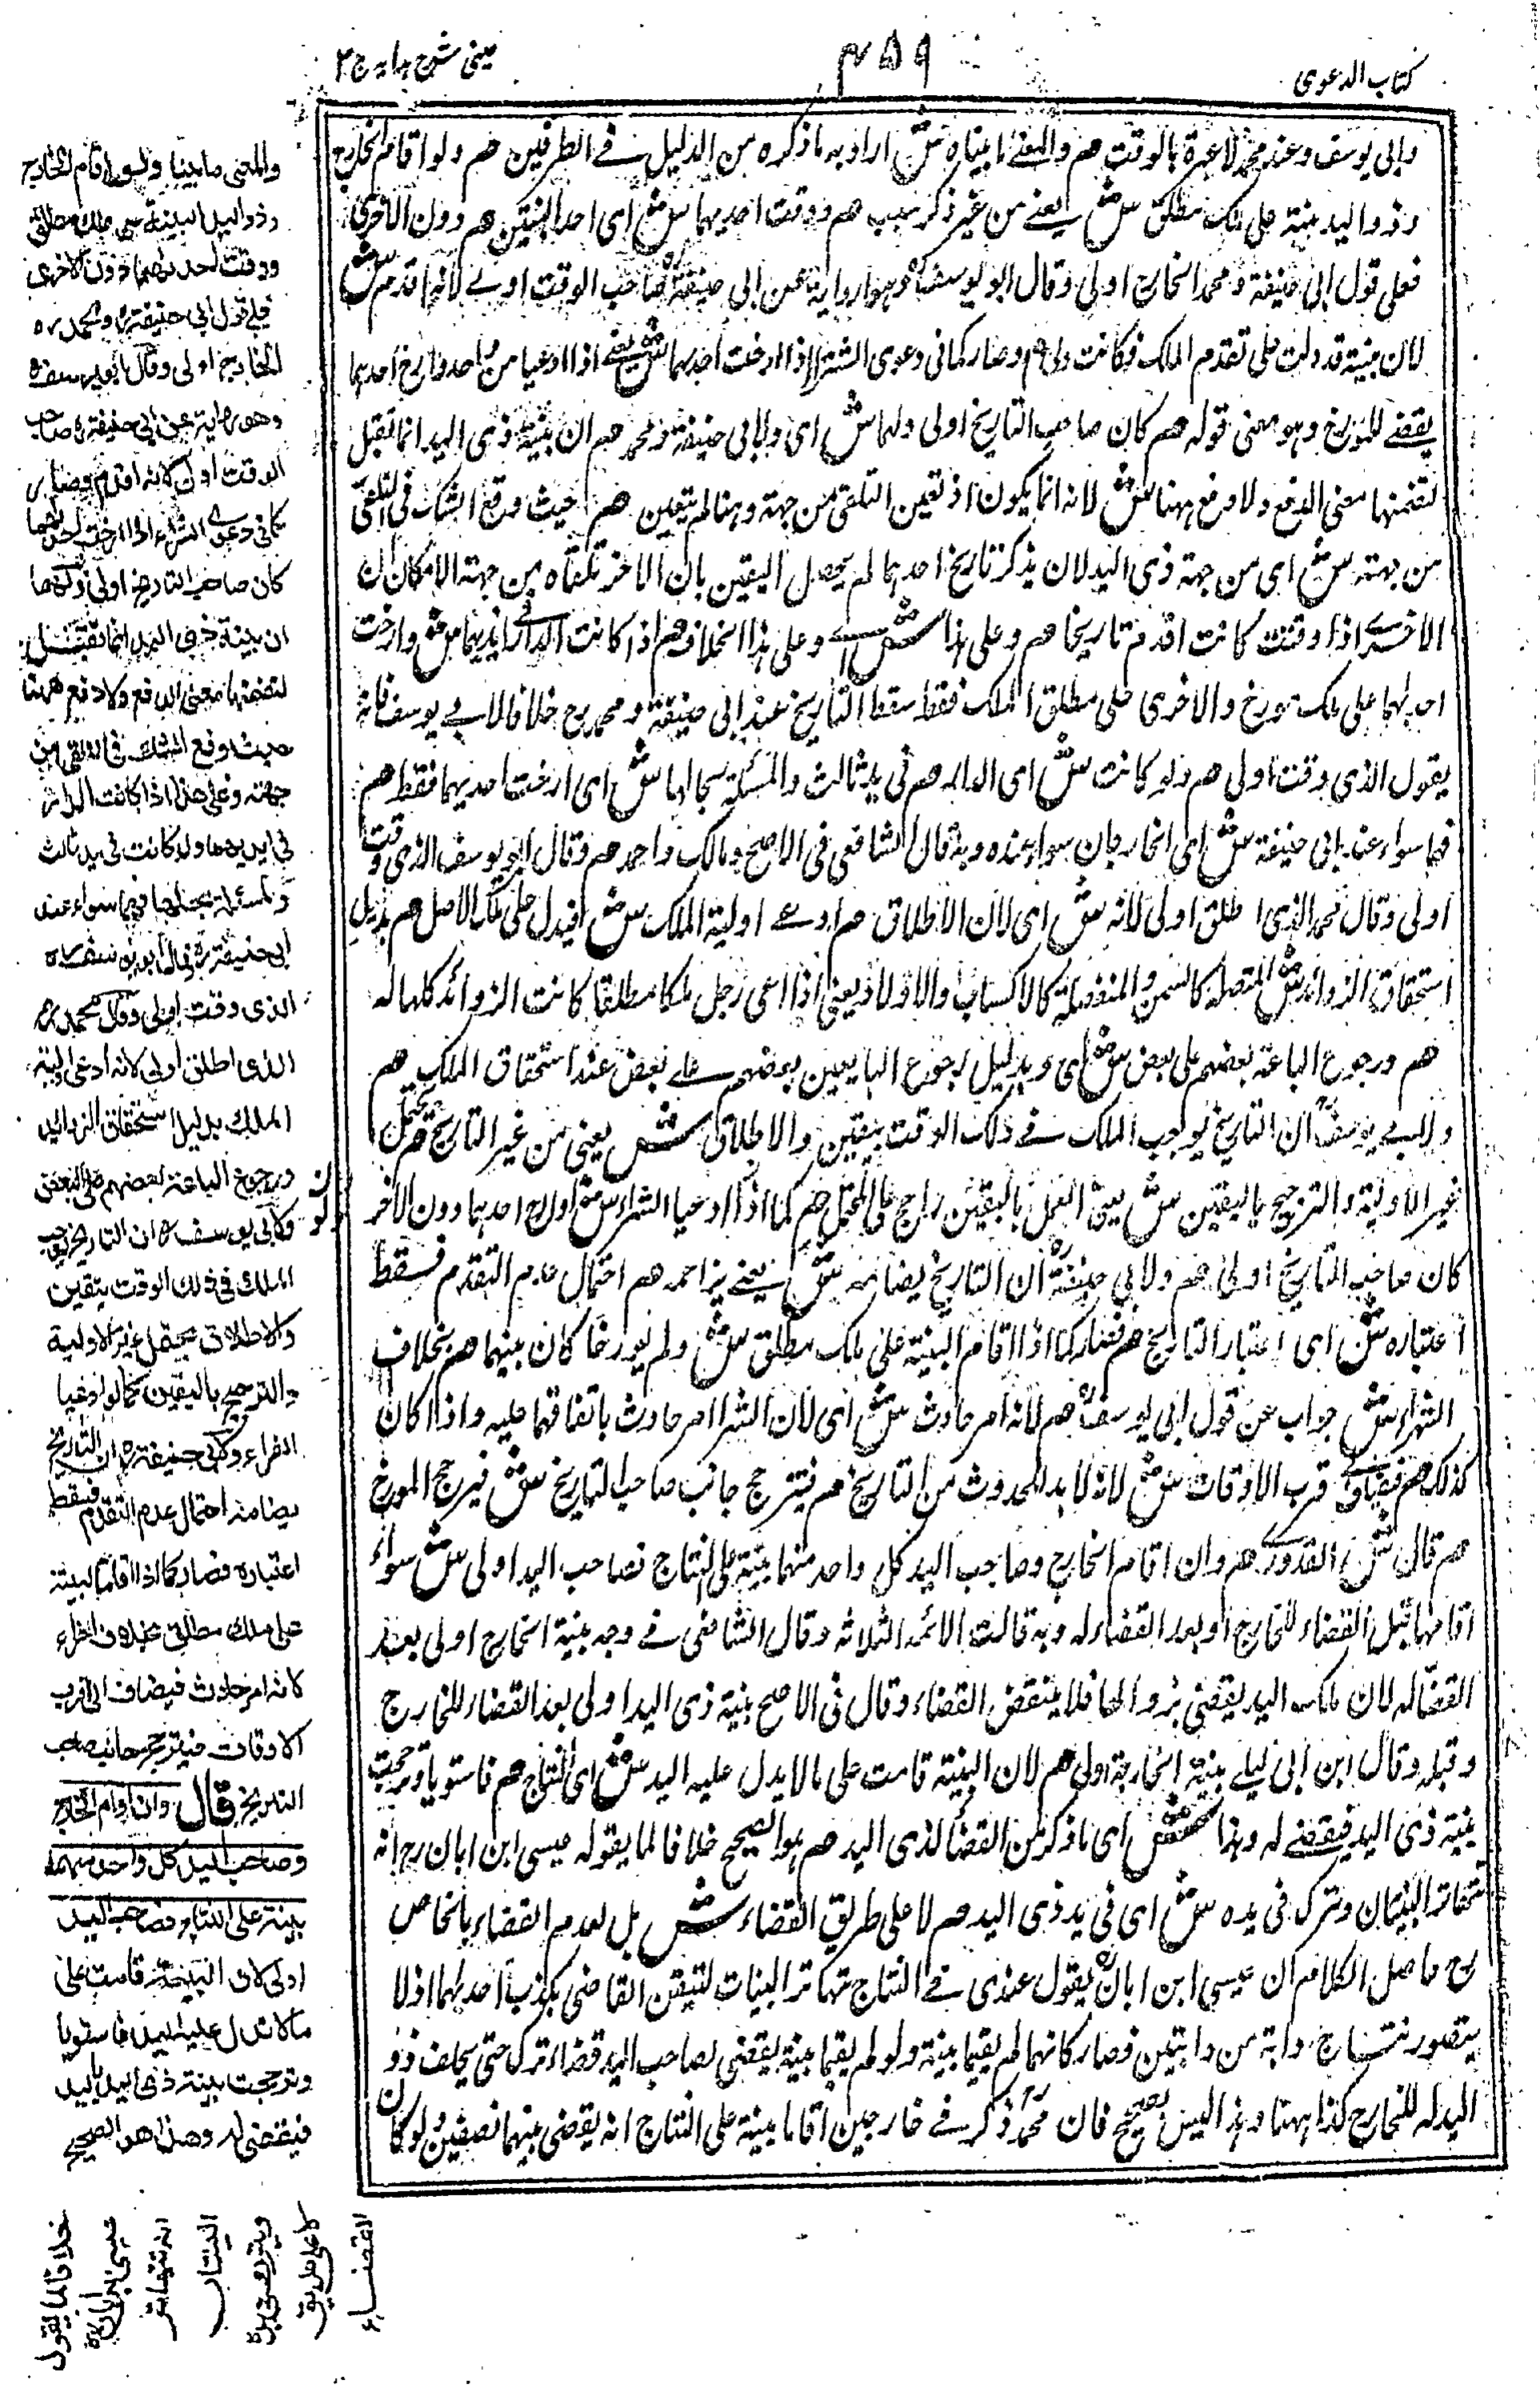 كتاب الدعوى
٤٥٩
عينى شرح هدايه ج٣
وابى يوسف وعند محمد لا عبرة بالوقت هم والمعنى ما بيناه ش اراد به ما ذكره من الدليل فى الطرفين هم ولو اقام الخارج
وذو اليد بينة على ملك مطلق ش يعنى من غير ذكر سبب هم ووقت احديهما ش اى احد البينتين هم دون الاخرى
فعلى قول ابى حنيفة ومحمد الخارج اولى وقال ابو يوسف وهو رواية عن ابى حنيفة صاحب الوقت اولى لانه اقدم ش
لان بينة قد دلت على تقدم الملك فكانت اولى هم وصار كما فى دعوى الشراء اذا ارخت احدهما ش يعنى اذا ادعيا من واحد وارخ احدهما
يقضى للمورخ وهو معنى قوله هم كان صاحب التاريخ اولى ولهما ش اى ولابى حنيفة ومحمد هم ان بينة ذى اليد انما تقبل
لتضمنها معنى الدفع ولا دفع ههنا ش لانه انما يكون اذ تعين التلقى من جهة وهنا لم يتعين هم حيث وقع الشك فى التلقى
من جهته ش اى من جهة ذى اليد لان بذكر تاريخ احدهما لم يحصل اليقين بان الاخر تلقاه من جهته الامكان ان
الاخرى اذا وقتت كانت اقدم تاريخا هم وعلى هذا ش اى وعلى هذا الخلاف هم اذا كانت الدار فى ايديهما ش وارخت
احدهما على ملك مورخ والاخرى على مطلق الملك فقط سقط التاريخ عند ابى حنيفة ومحمد رح خلافا لابى يوسف فانه
يقول الذى وقت اولى هم ولو كانت ش اى الدابه هم فى يد ثالث والمسئلة بحالها ش اى ارخت احديهما فقط هم
فهما سواء عند ابى حنيفة ش اى الخارجان سواء عنده وبه قال الشافعى فى الاصح ومالك واحمد هم وقال ابو يوسف الذى وقت
اولى وقال محمد الذى اطلق اولى لانه ش اى لان الاطلاق هم ادعى اولية الملك ش افيدل على ملك الاصل هم بدليل
استحقاق الزوائد ش المتصلة كالسمن والمنفصلة كالاكساب والاولاد يعنى اذا ادعى رجل ملكا مطلقا كانت الزوائد كلها له
هم ورجوع الباعة بعضهم على بعض ش اى وبدليل رجوع البايعين بعضهم على بعض عند استحقاق الملك هم
ولابى يوسف ان التاريخ يوجب الملك فى ذلك الوقت بيقين والاطلاق ش يعنى من غير التاريخ هم يحتمل
غير الاولية والترجيح باليقين ش يعنى العمل باليقين راجح على المحتمل هم كما اذا ادعيا الشراء ش وارخ احدهما دون الاخر
كان صاحب التاريخ اولى هم ولابى حنيفة ان التاريخ يضامه ش يعنى يزاحمه هم احتمال عدم التقدم فسقط
اعتباره ش اى اعتبار التاريخ هم فصار كما اذا اقام البينة على ملك مطلق ش ولم يورخا كان بينهما هم بخلاف
الشراء ش جواب عن قول ابى يوسف هم لانه امر حادث ش اى لان الشرا امر حادث باتفاقهما عليه واذا كان
كذلك هم فيضاف الى قرب الاوقات ش لانه لا بد للحدوث من التاريخ هم فيترجح جانب صاحب التاريخ ش فيرجح المورخ
هم قال ش اى القدورى هم وان اقام الخارج وصاحب اليد كل واحد منهما بينة على النتاج فصاحب اليد اولى ش سواء
اقامها قبل القضاء للخارج او بعد القضاء له وبه قالت الائمة الثلاثة وقال الشافعى فى وجه بينة الخارج اولى بعد
القضا له لان ملك اليد يقضى بزوالها فلا ينتقض القضاء وقال فى الاصح بينة ذى اليد اولى بعد القضاء للخارج
وقبله وقال ابن ابى ليلى بينة الخارجة اولى هم لان البينة قامت على ما لا يدل عليه اليد ش اى النتاج هم فاستويا وترجحت
بينة ذى اليد فيقضى له وهذا ش اى ما ذكر من القضا لذى اليد هم هو الصحيح خلافا لما يقوله عيسى ابن ابان رح انه
تتهاتر البينتان وترك فى يده ش اى فى يد ذى اليد هم لا على طريق القضاء ش بل لعدم القضاء بالخاص
رح حاصل الكلام ان عيسى ابن ابان يقول عندى فى النتاج تهاتر البينات لتيقن القاضى بكذب احدهما اذ لا
يتصور نتاج دابة من دابتين فصار كانهما لم يقيما بينة ولو لم يقيما بينة يقضى لصاحب اليد قضاء ترك حتى يحلف ذو
اليد له للخارج كذا ههنا وهذا ليس بصحيح فان محمدا ذكر فى خارجين اقاما بينة على النتاج انه يقضى بينهما نصفين ولو كان
والمعنى ما بينا ولو اقام الخارج
وذو اليد البينة على ملك مطلق
ووقت احدهما دون الاخرى
فعلى قول ابى حنيفة ره ومحمد ره
الخارج اولى وقال ابو يوسف ره
وهو رواية عن ابى حنيفة ره صاحب
الوقت اولى لانه اقدم وصار
كما فى دعوى الشراء اذا ارخت احدهما
كان صاحب التاريخ اولى ولهما
ان بينة ذى اليد انما تقبل
لتضمنها معنى الدفع ولا دفع ههنا
حيث وقع الشك فى التلقى من
جهته وعلى هذا اذا كانت الدار
فى ايديهما ولو كانت فى يد ثالث
والمسئلة بحالها فهما سواء عند
ابى حنيفة ره وقال ابو يوسف ره
الذى وقت اولى وقال محمد ره
الذى اطلق اولى لانه ادعى اولية
الملك بدليل استحقاق الزوائد
ورجوع الباعة بعضهم على البعض
ولابى يوسف ره ان التاريخ يوجب
الملك فى ذلك الوقت بيقين
والاطلاق يحتمل غير الاولية
والترجيح باليقين كما لو ادعيا
الشراء ولابى حنيفة ره ان التاريخ
يضامه احتمال عدم التقدم فسقط
اعتباره فصار كما اذا اقاما البينة
على ملك مطلق بخلاف الشراء
لانه امر حادث فيضاف الى اقرب
الاوقات فيترجح جانب صاحب
التاريخ قال وان اقام الخارج
وصاحب اليد كل واحد منهما
بينة على النتاج فصاحب اليد
اولى لان البينة قامت على
ما لا تدل عليه اليد فاستويا
وترجحت بينة ذى اليد باليد
فيقضى له وهذا هو الصحيح
خلافا لما يقول
عيسى بن ابان ره
انه تتهاتر
البينتان
ويترك فى يده
لا على طريق
القضاء